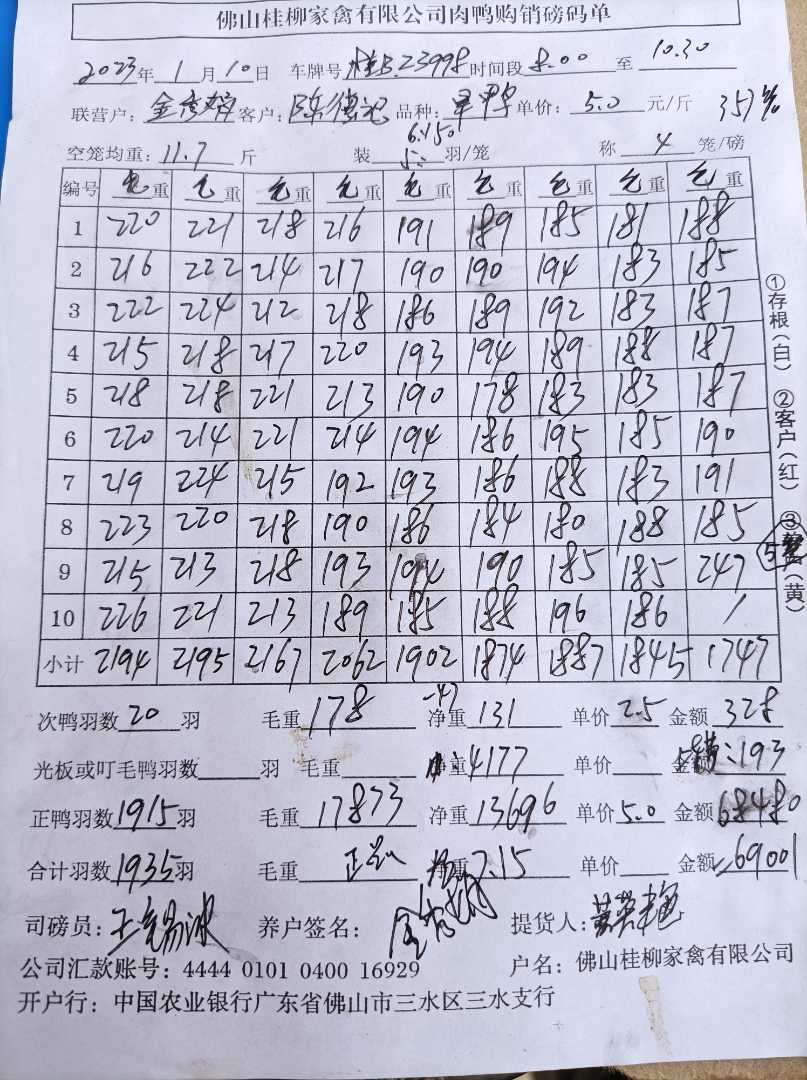 佛山桂柳家禽有限公司肉鸭购销磅码单
2023年 1月 10日 车牌号 桂B.23998 时间段 8.00 至 10.30
联营户: 客户: 陈德 品种: 单价: 5.0 元/斤 357%
6.150
空笼均重: 11.7 斤 装 羽/笼 称 4 笼/磅
编号 毛重 毛重 毛重 毛重 毛重 毛重 毛重 毛重 毛重
1 220 221 218 216 191 189 185 181 188
2 216 222 214 217 190 190 194 183 185
3 222 224 212 218 186 189 192 183 187
4 215 218 217 220 193 194 189 188 187
5 218 218 221 213 190 178 183 183 187
6 220 214 221 214 194 186 195 185 190
7 219 224 215 192 193 186 188 183 191
8 223 220 218 190 186 184 180 188 185
9 215 213 218 193 194 190 185 185 247
10 226 221 213 189 185 188 196 186 /
小计 2194 2195 2167 2062 1902 1874 1887 1845 1747
-47
次鸭羽数 20 羽 毛重 178 净重 131 单价 2.5 金额 328
光板或叮毛鸭羽数 羽 毛重 净重 4177 单价 金额 193
正鸭羽数 1915 羽 毛重 17873 净重 13696 单价 5.0 金额 68480
合计羽数 1935 羽 毛重 净重 7.15 单价 金额 69001
司磅员: 王 养户签名: 提货人:
公司汇款账号: 4444 0101 0400 16929 户名: 佛山桂柳家禽有限公司
开户行: 中国农业银行广东省佛山市三水区三水支行
①存根(白) ②客户(红) ③ (黄)